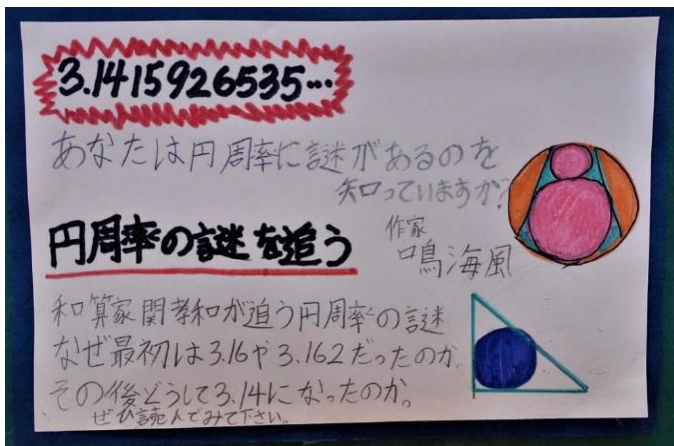 3.1415926535…
あなたは円周率に謎があるのを
知っていますか?
円周率の謎を追う
作家
鳴海風
和算家関孝和が追う円周率の謎
なぜ最初は3.16や3.162だったのか。
その後どうして3.14になったのか。
ぜひ読んでみて下さい。